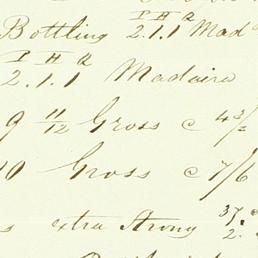 Bottling 2.1.1 Mad
I H Q
2.1.1 Madaira
9 11/12 Gross c 4 3/
0 Gross c 7/6
s extra Strong 37.
2.